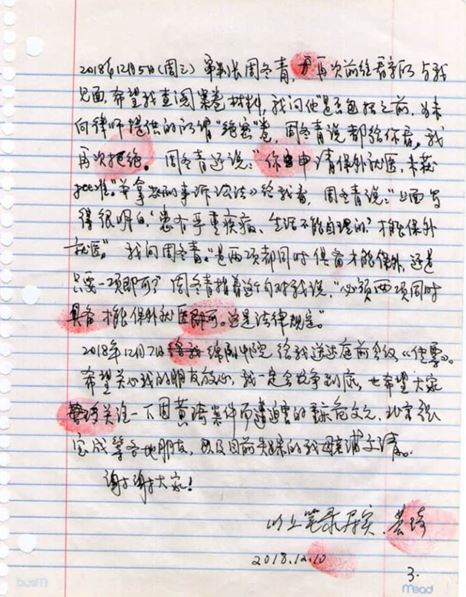 2018年12月5日(周三)审判长周冬青,再次前往看守所与我
见面,希望我查阅案卷材料,我问他"是否包括之前,尚未
向律师提供的所谓"绝密"卷,周冬青说都给你看,我
再次拒绝。周冬青还说:"你申请保外就医,未获
批准。"并拿出刑事诉讼法》给我看,周冬青说:"上面写
得很明白'患有严重疾病、生活不能自理的'才能保外
就医"。我问周冬青:"是两项都同时具备才能保外,还是
只要一项即可?"周冬青指着这句对我说,"必须两项同时
具备才能保外就医即可。这是法律规定"。
2018年12月7日 绵阳中院给我送达庭前会议《传票》。
希望关心我的朋友放心,我一定会抗争到底,也希望大家
关注一下因黄琦案件而遭迫害的 文
等各地朋友,以及目前失踪的我母亲蒲文清。
谢谢大家!
以上笔录属实 黄琦
2018.12.10
3.
Mead
Mead